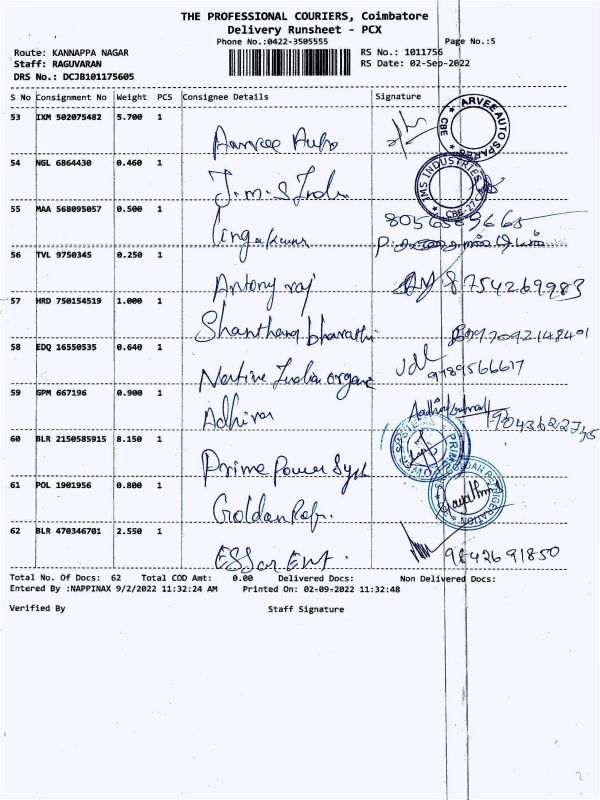 THE PROFESSIONAL COURIERS, Coimbatore
Delivery Runsheet - PCX
Phone No.:0422-3505555 Page No.:5
Route: KANNAPPA NAGAR RS No.: 1011756
Staff: RAGUVARAN RS Date: 02-Sep-2022
DRS No.: DCJB101175605
S No Consignment No Weight PCS Consignee Details Signature
53 IXM 502075482 5.700 1
ARVEE AUTO SPARES ★ CBE ★
54 NGL 6864430 0.460 1
J.m.s India
JMS INDUSTRIES ★ CBE-27 ★
55 MAA 568095057 0.500 1
56 TVL 9750345 0.250 1
Antony raj 8754269983
57 HRD 750154519 1.000 1
Shanthana bharathi
58 EDQ 16550535 0.640 1
Native India organic 9789566617
59 GPM 667196 0.900 1
Adhirai
60 BLR 2150585915 8.150 1
Prime Power Syst
61 POL 1901956 0.800 1
Goldan Refr.
62 BLR 470346701 2.550 1
ESSar Ent. 9842691850
Total No. Of Docs: 62 Total COD Amt: 0.00 Delivered Docs: Non Delivered Docs:
Entered By :NAPPINAX 9/2/2022 11:32:24 AM Printed On: 02-09-2022 11:32:48
Verified By Staff Signature